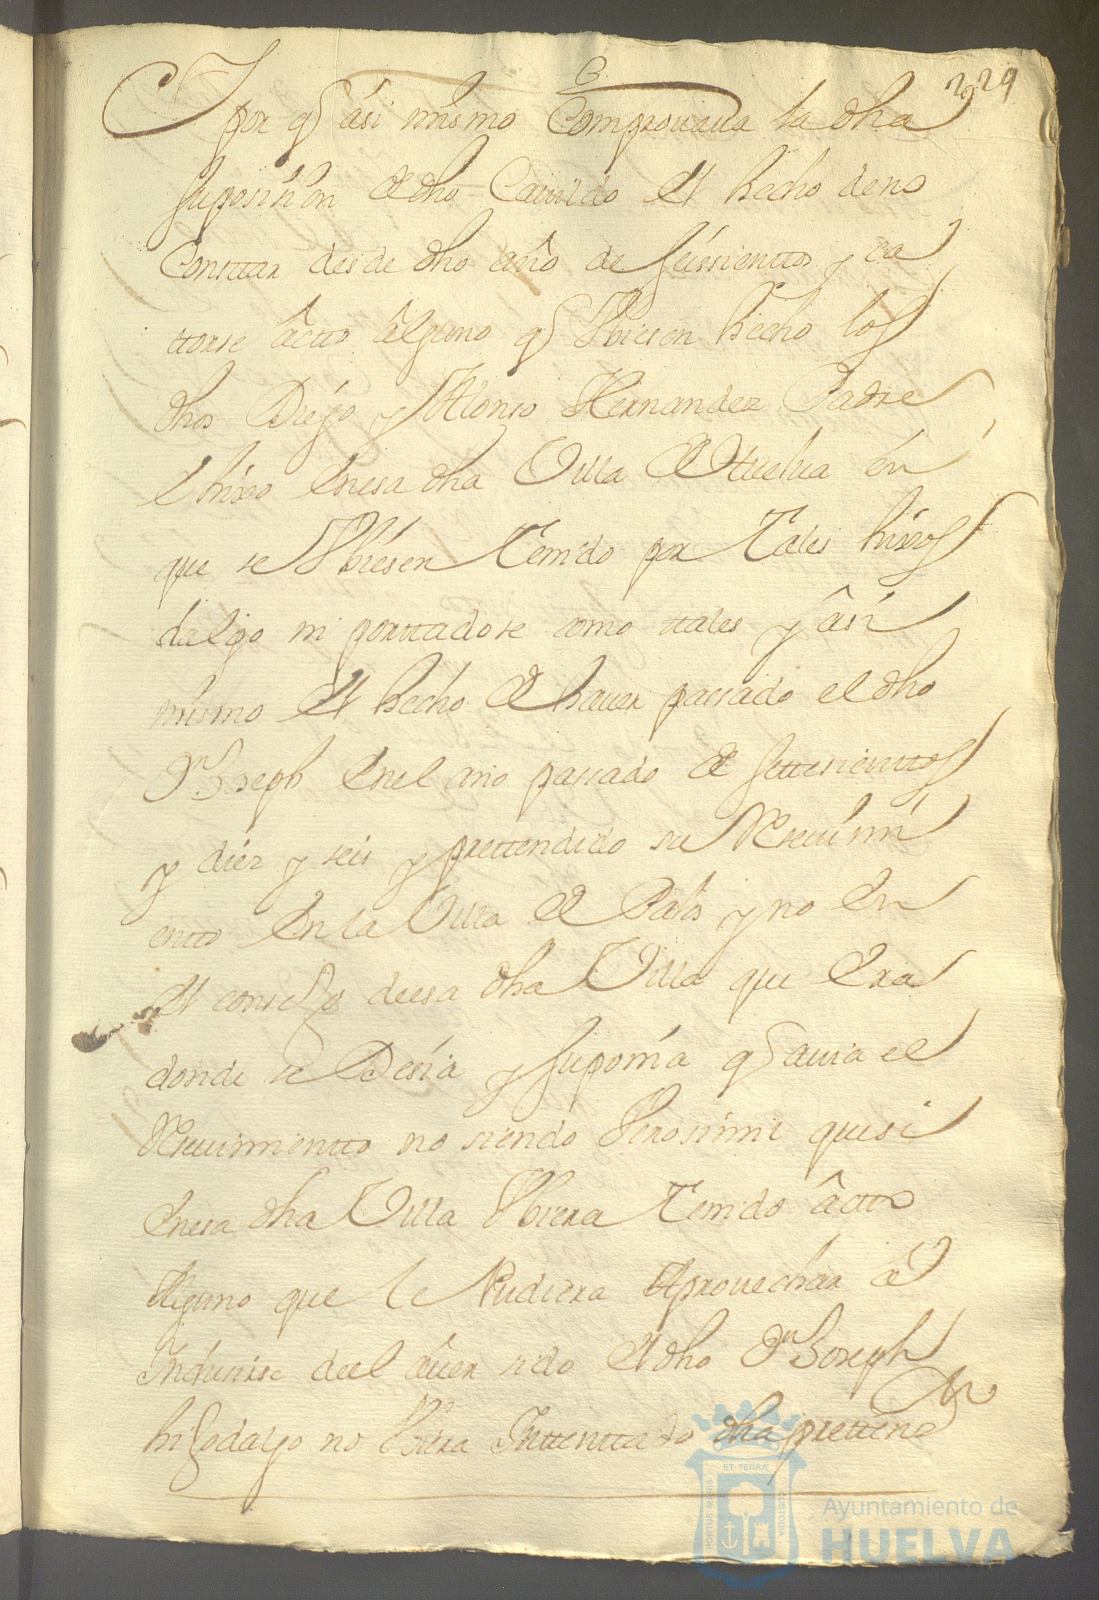 229
Y por q asi mismo Comprouaua la dha
suposision de dho Cauildo el hecho de no
Consttar desde dho año de seissienttos y ca
ttorse actto alguno q Vbiesen hecho los
dhos Diego y Alonso Hernandez Padre
e hixo en esa dha Villa de Huelua en
que se Vbiesen Tenido por Tales hixos
dalgo ni porttadose como ttales y asi
mismo el hecho de hauer passado el dho
Dn Joseph en el año passado de settesienttos
y diez y seis y prettendido su Resiuimi
entto En la Villa de Palos y no En
el consejo de esa dha Villa que Era
donde se Desia y suponia q auia el
Resiuimientto no siendo Verosimil que si
en esa dha Villa Vbiera Tenido actto
Alguno que le Pudiera Aprouechar a
Indusirse de el auer sido el dho Dn Joseph
hijodalgo no Vbiera Inttenttado dha prettene
PORTUS MARIS ET TERRÆ CUSTODIA
Ayuntamiento de
HUELVA